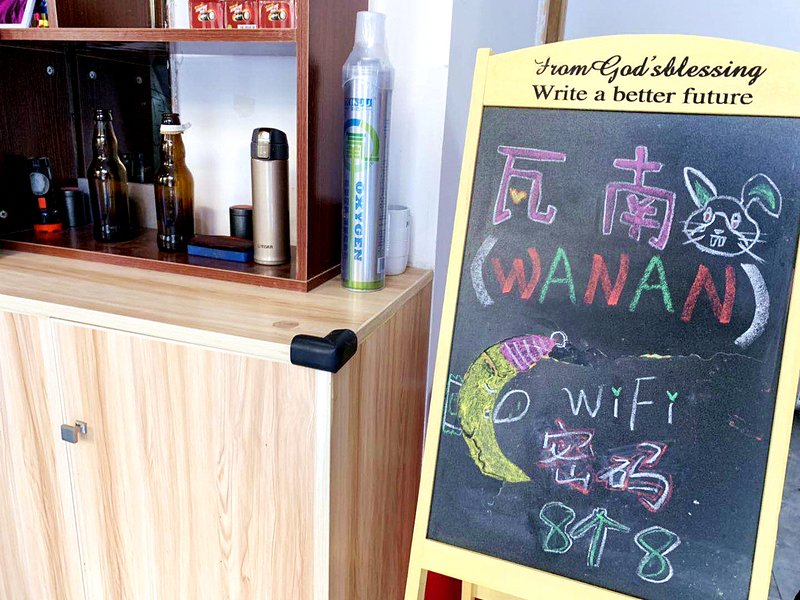 From God'sblessing
Write a better future
瓦南
(WANAN)
WiFi
密码
8个8
OXYGEN